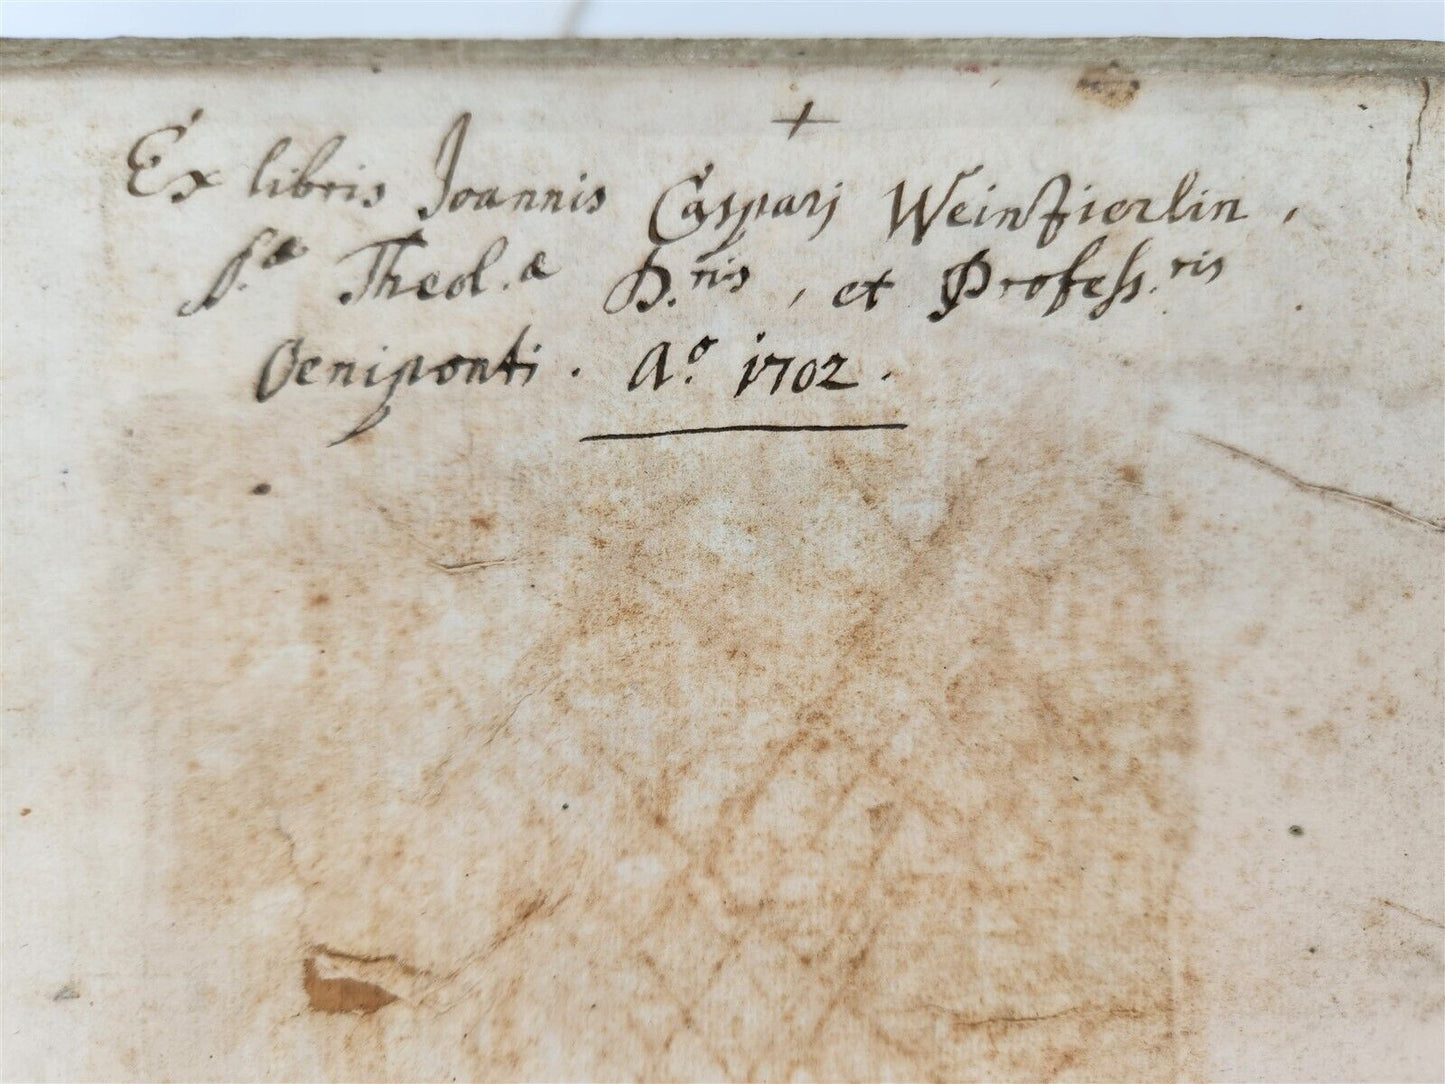 +
Ex libris Joannis Casparj Weinzierlin,
S.æ Theol.æ D.ris, et Profess.ris
Oeniponti. Aº. 1702.